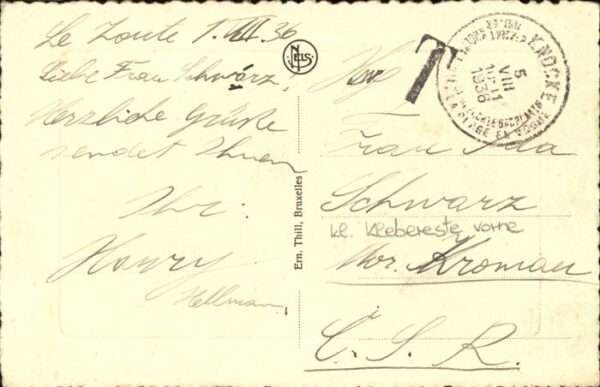 Le Zoute 1. VIII. 36
Liebe Frau Schwarz,
Herzliche Grüße
sendet Ihnen
Ihr
Henry
Hellmann
NELS
Ern. Thill, Bruxelles
T
KNOCKE
5
VIII
1936
Frau Ida
Schwarz
kl. Klebereste vorne
Mor. Kromau
Č. S. R.